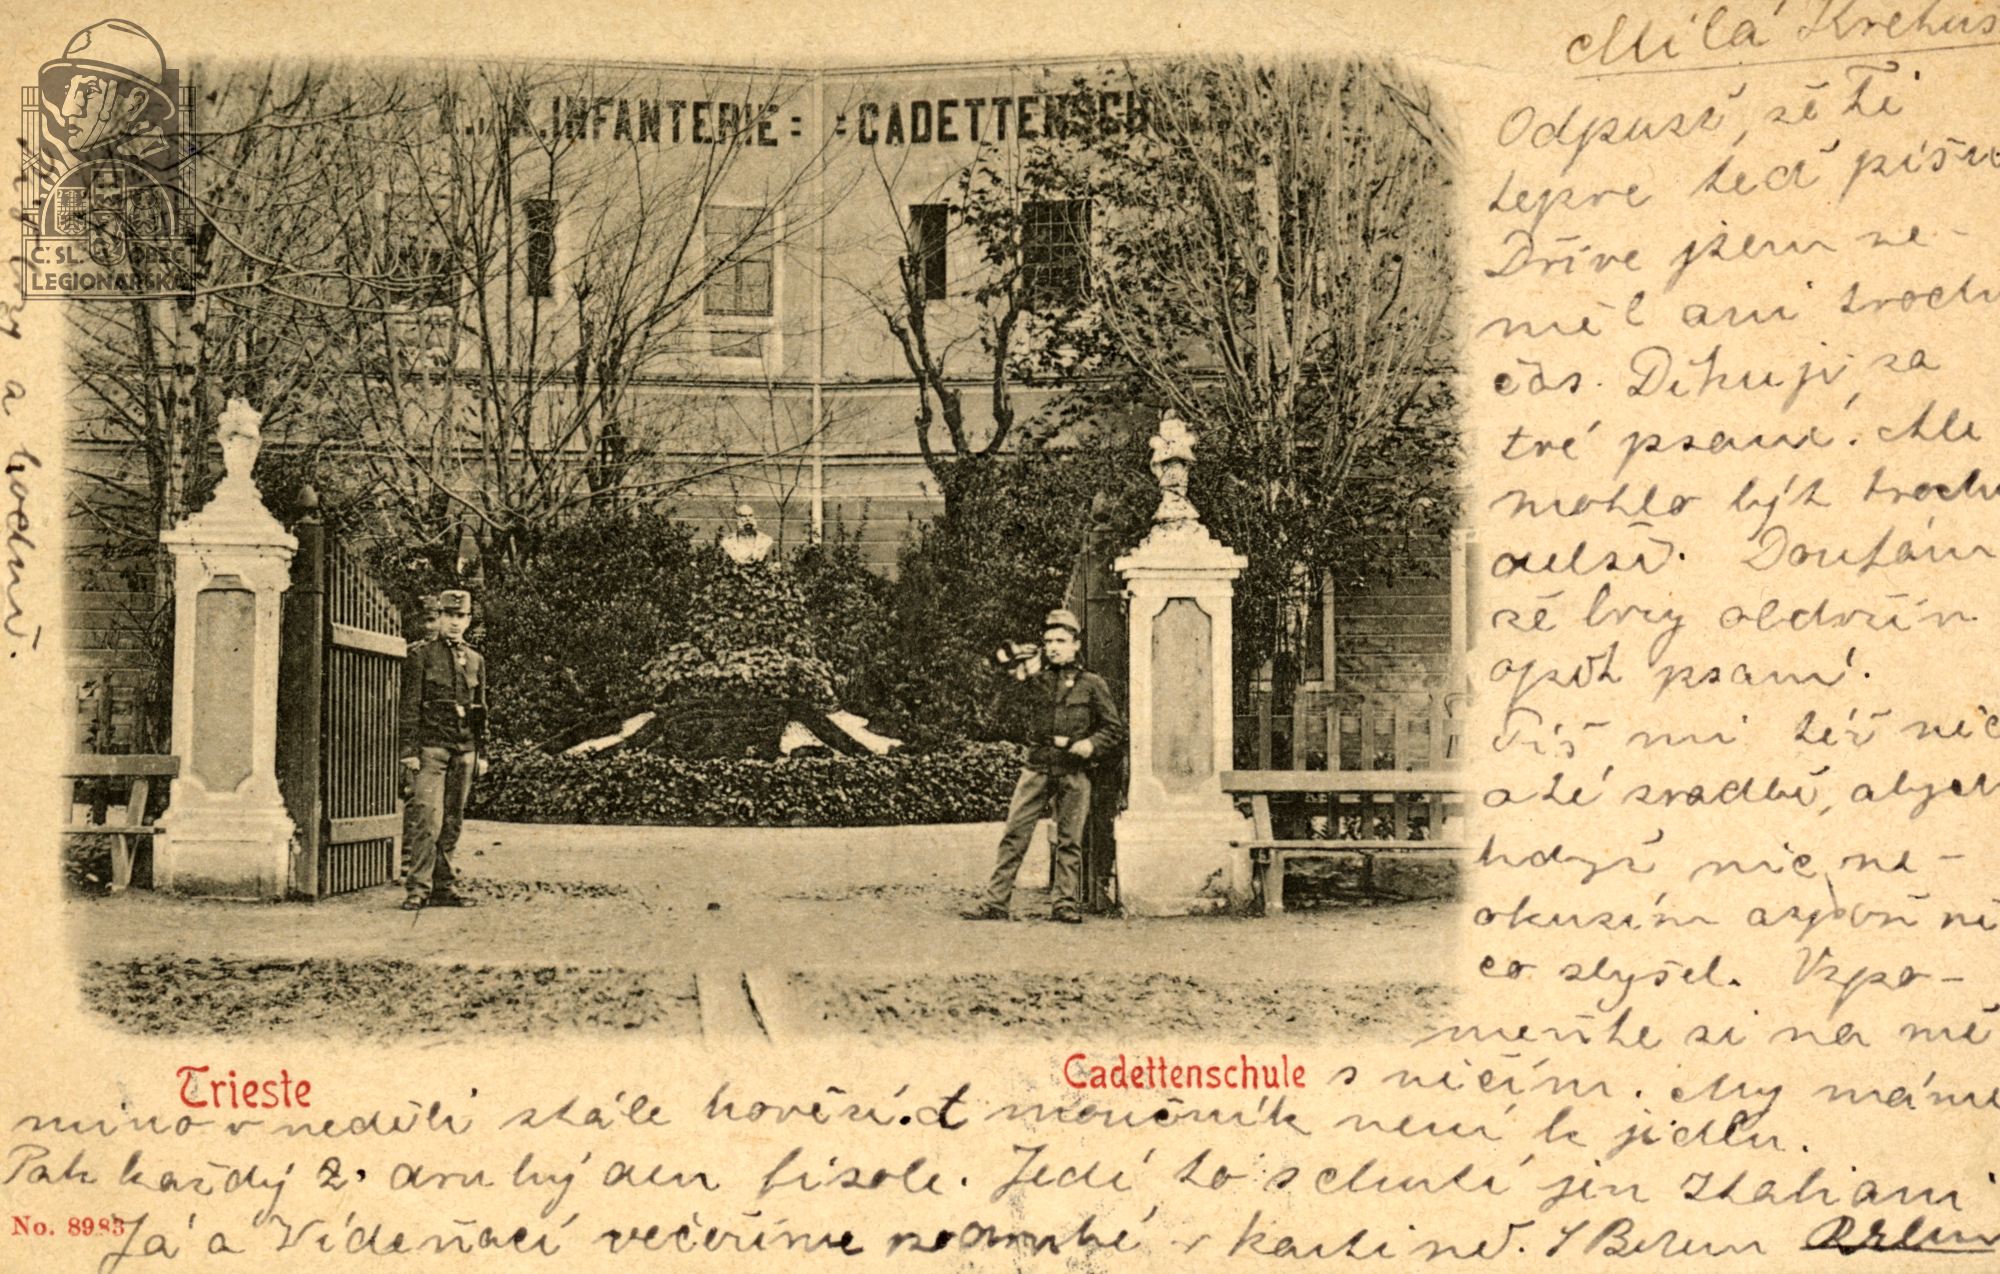 INFANTERIE = = CADETTENSCH
C. SL. OBEC
LEGIONÁŘSKÁ
Milá
Odpusť, že Ti
tepre teď píšu
Dříve jsem ne-
měl ani trochu
čas. Děkuji za
tvé psaní. Ale
mohlo být trochu
delší. Doufám
že brzy obdržím
opět psaní.
Piš mi též něc
o té svadbě, abych
když nic ne-
okusím aspoň ně
co slyšel. Vzpo-
meňte si na mě
s něčím. My máme
mimo v neděli stále hovězí. A moučník není k jídlu.
Pak každý 2. druhý den fisole. Jedí to s chutí jen Italiani
Já a Vídeňáci večeříme v kantině. S
a hodně.
Trieste
Cadettenschule
No. 8983